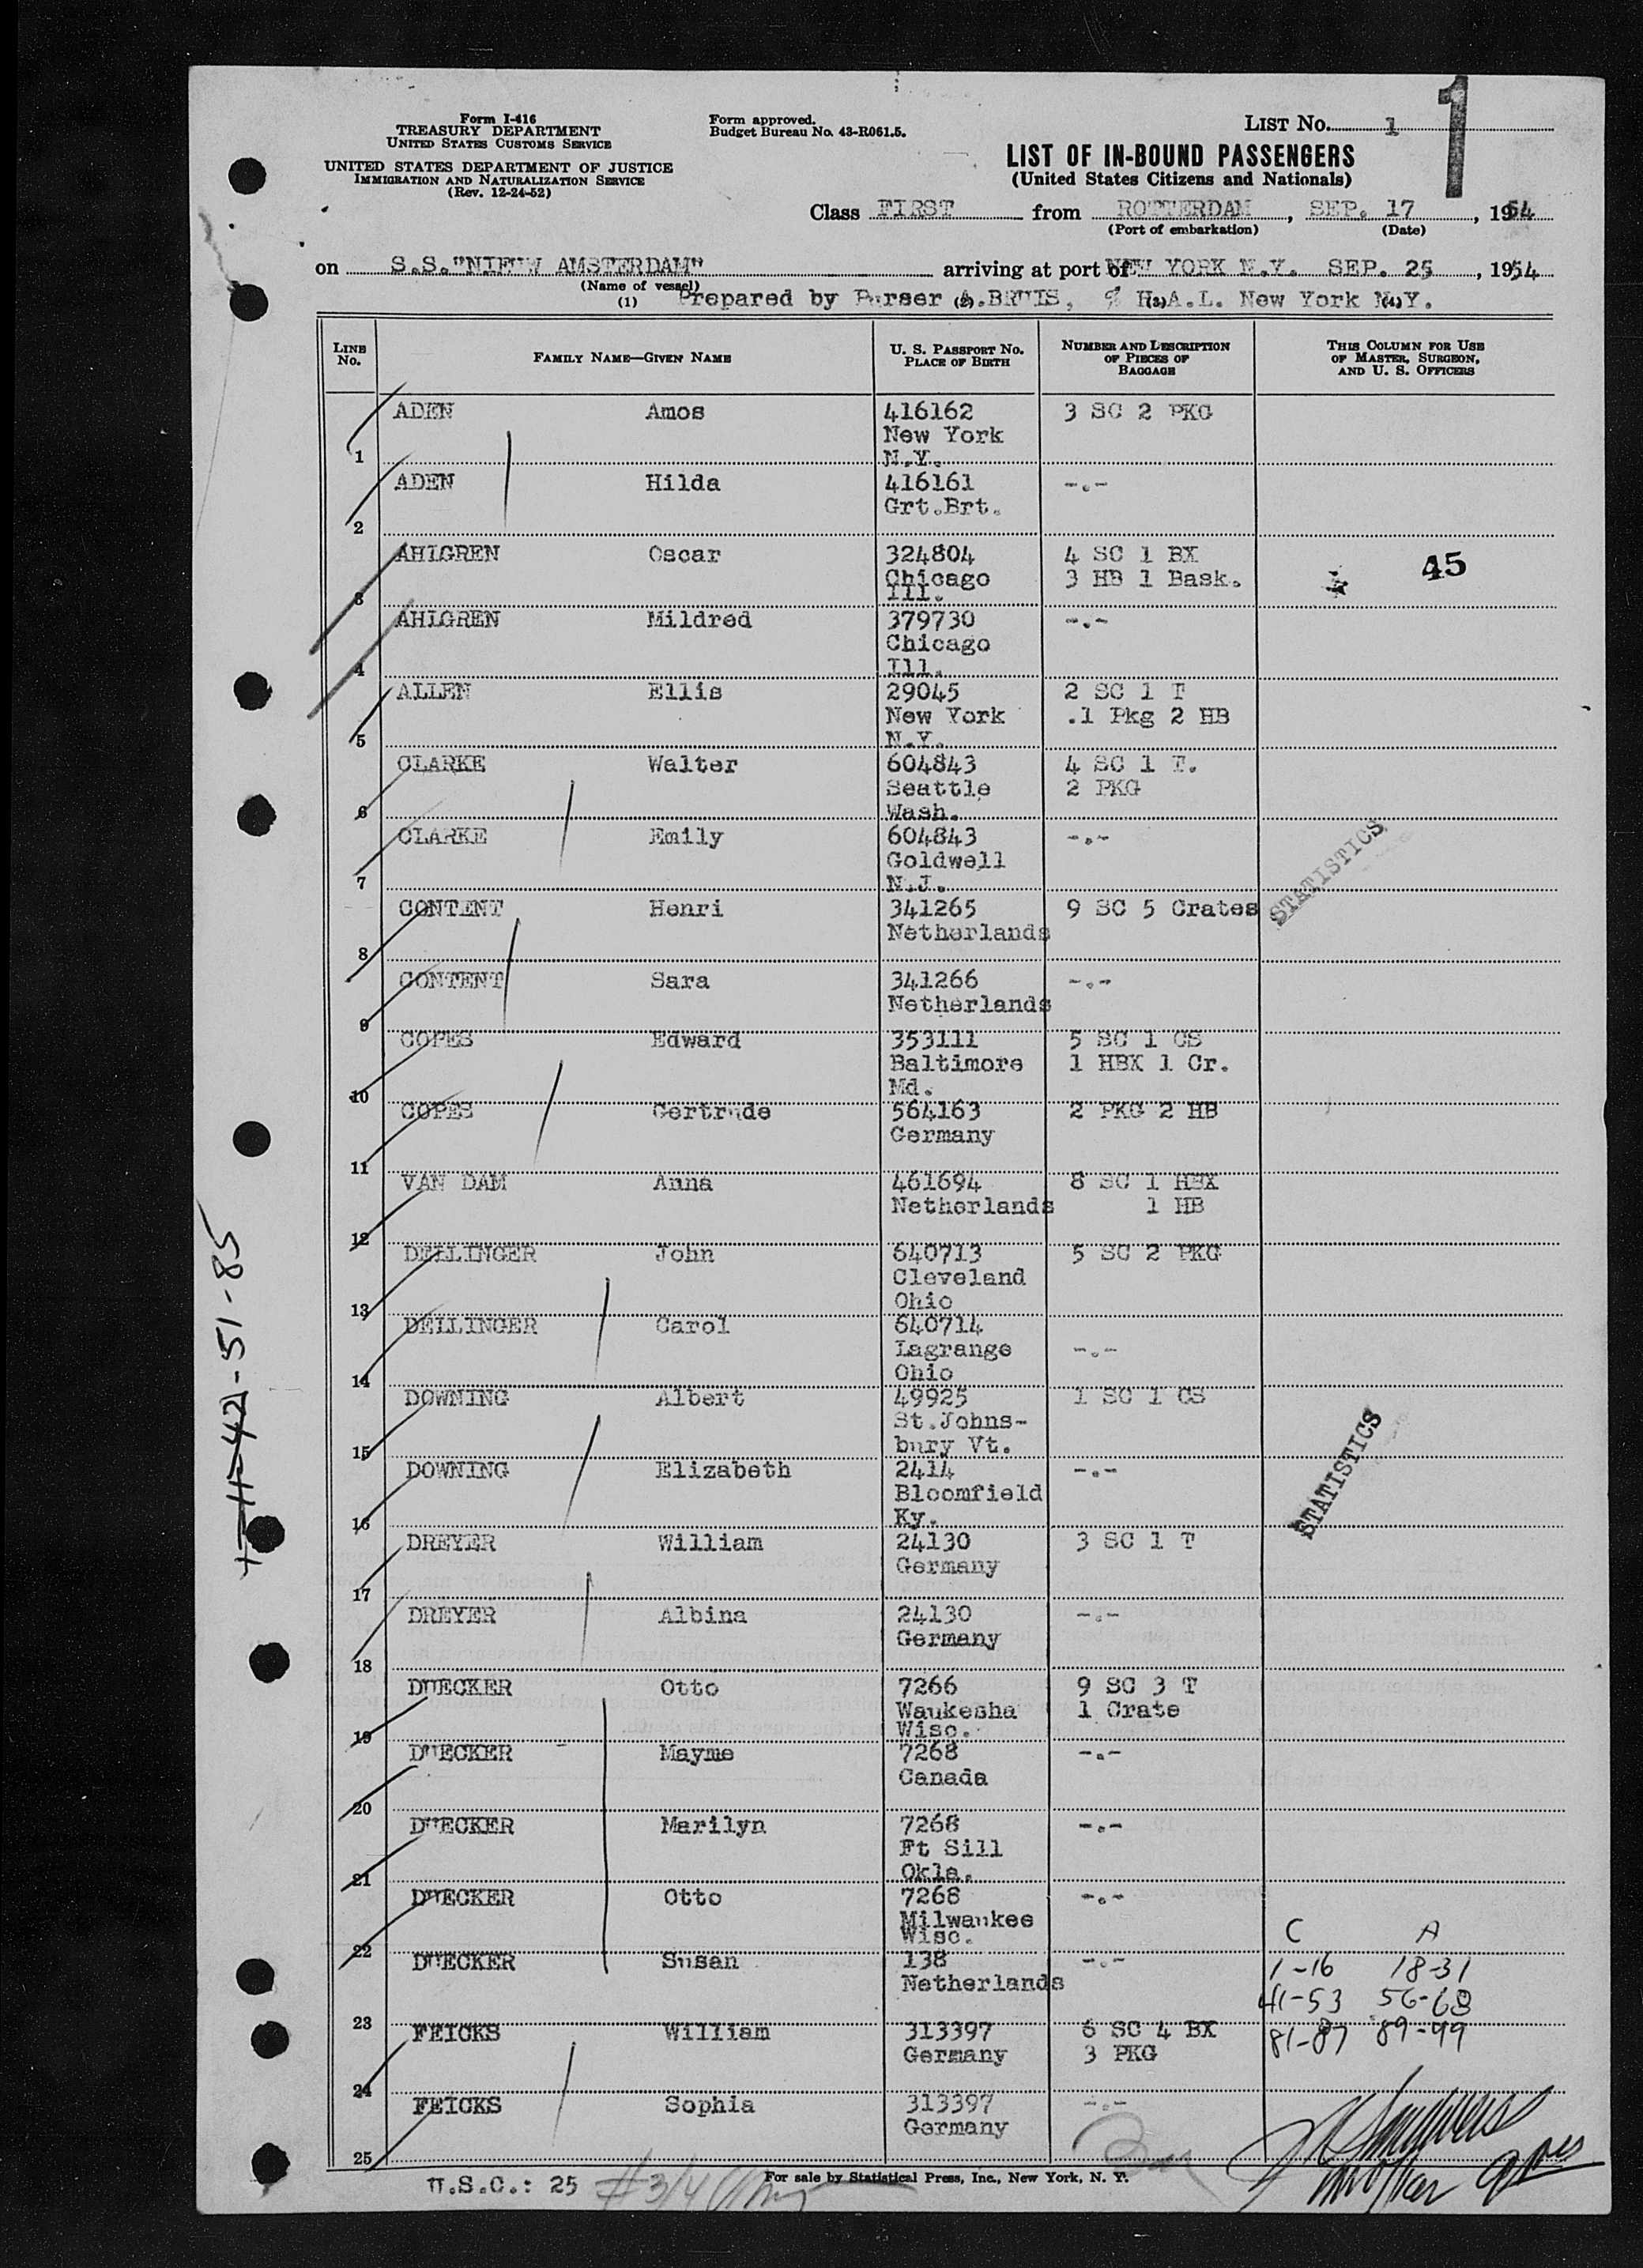 Form I-416
TREASURY DEPARTMENT
UNITED STATES CUSTOMS SERVICE
UNITED STATES DEPARTMENT OF JUSTICE
IMMIGRATION AND NATURALIZATION SERVICE
(Rev. 12-24-52)
Form approved.
Budget Bureau No. 43-R061.5.
LIST No. 1
1
LIST OF IN-BOUND PASSENGERS
(United States Citizens and Nationals)
Class FIRST from ROTTERDAM, SEP. 17, 1954
(Port of embarkation) (Date)
on S.S."NIEUW AMSTERDAM" arriving at port of NEW YORK N.Y. SEP. 25, 1954
(Name of vessel)
(1) Prepared by Purser (2) A.BRUIS, % H.A.L. (3) New York N.Y. (4)
LINE No.
FAMILY NAME—GIVEN NAME
U. S. PASSPORT NO.
PLACE OF BIRTH
NUMBER AND DESCRIPTION
OF PIECES OF
BAGGAGE
THIS COLUMN FOR USE
OF MASTER, SURGEON,
AND U. S. OFFICERS
ADEN Amos 416162 3 SC 2 PKG
New York
1 N.Y.
ADEN Hilda 416161 -.-
Grt.Brt.
2
AHLGREN Oscar 324804 4 SC 1 BX 45
Chicago 3 HB 1 Bask.
3 Ill.
AHLGREN Mildred 379730 -.-
Chicago
4 Ill.
ALLEN Ellis 29045 2 SC 1 T
New York .1 Pkg 2 HB
5 N.Y.
CLARKE Walter 604843 4 SC 1 T.
Seattle 2 PKG
6 Wash.
CLARKE Emily 604843 -.-
Goldwell
7 N.J.
STATISTICS
CONTENT Henri 341265 9 SC 5 Crates
Netherlands
8
CONTENT Sara 341266 -.-
Netherlands
9
COPES Edward 353111 5 SC 1 CS
Baltimore 1 HBX 1 Cr.
10 Md.
COPES Gertrude 564163 2 PKG 2 HB
Germany
11
VAN DAM Anna 461694 8 SC 1 HBX
Netherlands 1 HB
12
DELLINGER John 640713 5 SC 2 PKG
Cleveland
13 Ohio
DELLINGER Carol 640714
Lagrange -.-
14 Ohio
DOWNING Albert 49925 1 SC 1 CS
St.Johns-
15 bury Vt.
DOWNING Elizabeth 2414 -.-
Bloomfield
16 Ky.
STATISTICS
DREYER William 24130 3 SC 1 T
Germany
17
DREYER Albina 24130 -.-
Germany
18
DUECKER Otto 7266 9 SC 3 T
Waukesha 1 Crate
19 Wisc.
DUECKER Mayme 7268 -.-
Canada
20
DUECKER Marilyn 7268 -.-
Ft Sill
21 Okla.
DUECKER Otto 7268 -.-
Milwaukee
22 Wisc.
C A
DUECKER Susan 138 -.- 1-16 18-31
Netherlands
23 41-53 56-68
FEICKS William 313397 6 SC 4 BX 81-87 89-99
Germany 3 PKG
24
FEICKS Sophia 313397 -.-
Germany
25
U.S.C.: 25
#314
For sale by Statistical Press, Inc., New York, N. Y.
42-51-85